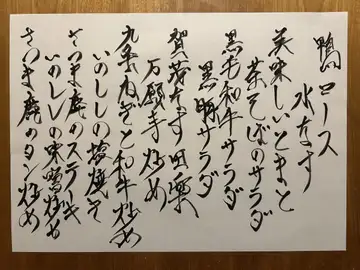 鴨ロース
水なす
美味しいとまと
茶そばのサラダ
黒毛和牛サラダ
黒豚サラダ
賀茂なす田楽
万願寺炒め
九条ねぎと和牛炒め
いのししの塩焼き
さつま鹿のステーキ
いのししの味噌炒め
さつま鹿のタン炒め